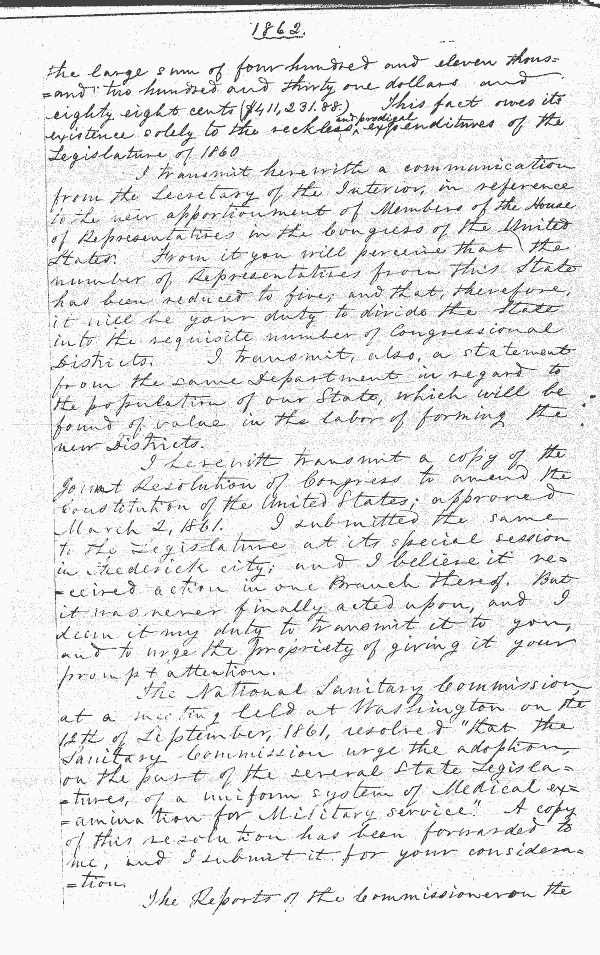 1862.
the large sum of four hundred and eleven thous=
=and two hundred and thirty one dollars and
eighty eight cents ($411,231.88). This fact owes its
and prodigal
existence solely to the reckless expenditures of the
Legislature of 1860
I transmit herewith a communication
from the Secretary of the Interior, in reference
to the new apportionment of Members of the House
of Representatives in the Congress of the United
States. From it you will perceive that the
number of Representatives from this State
has been reduced to five; and that, therefore,
it will be your duty to divide the State
into the requisite number of Congressional
Districts. I transmit, also, a statement
from the same Department in regard to
the population of our State, which will be
found of value in the labor of forming the
new Districts.
I herewith transmit a copy of the
Joint Resolution of Congress to amend the
Constitution of the United States; approved
March 2, 1861. I submitted the same
to the Legislature at its special session
in Frederick city; and I believe it re=
=ceived action in one Branch thereof. But
it was never finally acted upon, and I
deem it my duty to transmit it to you,
and to urge the propriety of giving it your
prompt attention.
The National Sanitary Commission,
at a meeting held at Washington on the
12th of September, 1861, resolved "that the
Sanitary Commission urge the adoption,
on the part of the several State Legisla=
=tures, of a uniform system of Medical ex=
=amination for Military service." A copy
of this resolution has been forwarded to
me, and I submit it for your considera=
=tion.
The Reports of the Commissioner on the